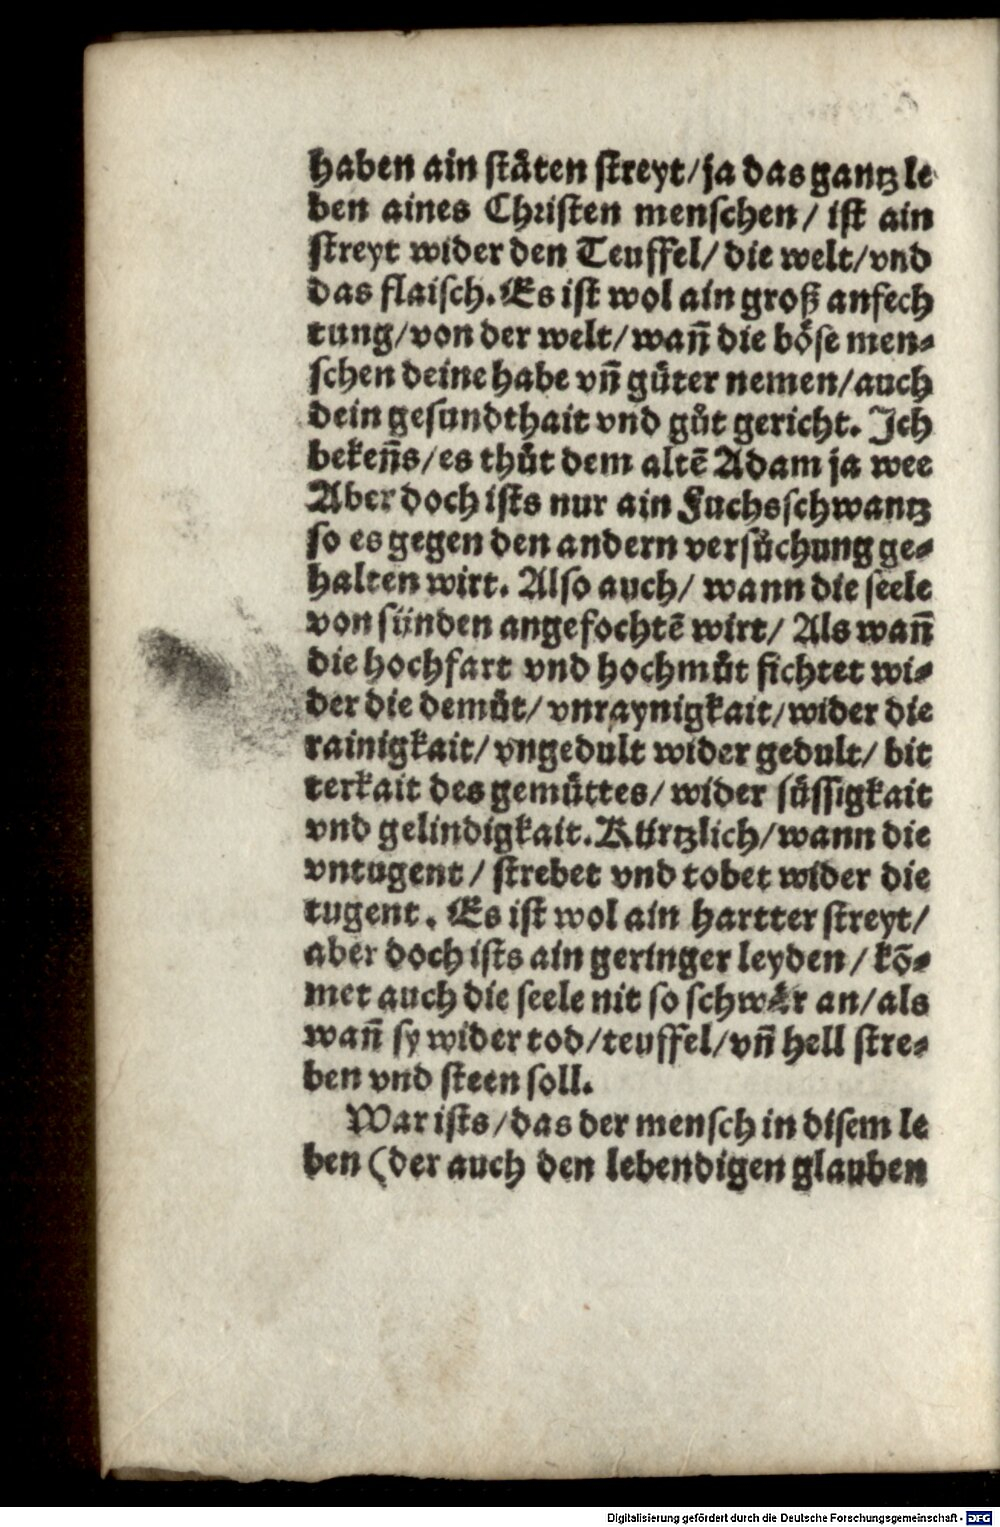 haben ain ståten streyt/ja das gantz le
ben aines Christen menschen/ ist ain
streyt wider den Teuffel/ die welt/vnd
das flaisch. Es ist wol ain groß anfech
tung/von der welt/wañ die böse men⸗
schen deine habe vñ gůter nemen/auch
dein gesundthait vnd gůt gericht. Ich
bekeñs/es thůt dem altẽ Adam ja wee
Aber doch ists nur ain Fuchsschwantz
so es gegen den andern versůchung ge⸗
halten wirt. Also auch/ wann die seele
von sünden angefochtẽ wirt/ Als wañ
die hochfart vnd hochmůt fichtet wi⸗
der die demůt/ vnraynigkait/wider die
rainigkait/ vngedult wider gedult/ bit
terkait des gemůttes/ wider sůssigkait
vnd gelindigkait. Kürtzlich/wann die
vntugent/ strebet vnd tobet wider die
tugent. Es ist wol ain hartter streyt/
aber doch ists ain geringer leyden/ kõ⸗
met auch die seele nit so schwår an/als
wañ sy wider tod/teuffel/vñ hell stre⸗
ben vnd steen soll.
War ists/das der mensch in disem le
ben (der auch den lebendigen glauben
Digitalisierung gefördert durch die Deutsche Forschungsgemeinschaft - DFG